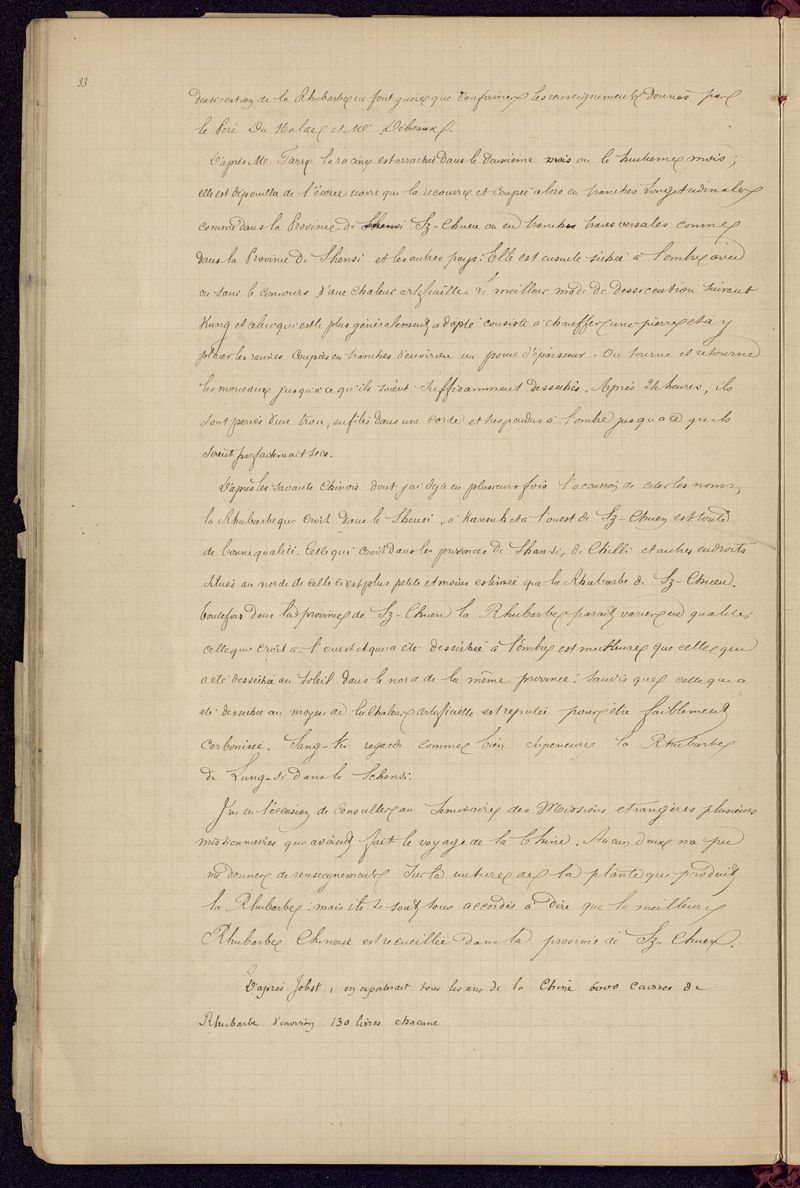 33
dessiccation de la Rhubarbe ne font guère que confirmer les renseignements donnés par
le Père Du Halde et Mr Debeaux.
D'après M. Tarre la racine est arrachée dans le deuxième mois ou le huitième mois;
elle est dépouillée de l'écorce noire qui la recouvre et coupée alors en tranches longitudinales
comme dans la Province de Shensi Sz-Chuen ou en tranches transversales comme
dans la Province de Shensi et les autres pays. Elle est ensuite séchée à l'ombre avec
ou sans le concours d'une chaleur artificielle. Le meilleur mode de dessiccation suivant
Kung et celui qui est le plus généralement adopté consiste à chauffer une pierre et à y
placer les racines coupées en tranches d'environ un pouce d'épaisseur. On tourne et retourne
les morceaux jusqu'à ce qu'ils soient suffisamment desséchés. Après 24 heures, ils
sont percés d'un trou, enfilés dans une corde et suspendus à l'ombre jusqu'à ce qu'ils
soient parfaitement secs.
D'après les savants Chinois dont j'ai déjà eu plusieurs fois l'occasion de citer les noms,
la Rhubarbe qui croit dans le Shensi, à Kansuh et à l'ouest de Sz-Chuen est toute
de bonne qualité. Celle qui croit dans les provinces de Shansi, de Chilli et autres endroits
situés au nord de celle ci est plus petite et moins estimée que la Rhubarbe de Sz-Chuen.
toutefois dans la province de Sz-Chuen la Rhubarbe parait varier en qualité;
celle qui croit à l'ouest et qui a été desséchée à l'ombre est meilleure que celle qui
a été desséchée au soleil dans le nord de la même province: tandis que celle qui a
été desséchée au moyen de la chaleur artificielle est réputée pour être faiblement
carbonisée. Sang-ki regarde comme bien supérieure la Rhubarbe
de Lung-si dans le Schensi.
J'ai eu l'occasion de consulter au Séminaire des Missions étrangères plusieurs
missionnaires qui avaient fait le voyage de la Chine. Aucun d'eux n'a pu
me donner de renseignements sur la nature de la plante qui produit
la Rhubarbe: mais ils se sont tous accordés à dire que la meilleure
Rhubarbe Chinoise est recueillie dans la province de Sz-Chuen.
D'après Jobst, on exporterait tous les ans de la Chine 6000 caisses de
Rhubarbe d'environ 130 livres chacune